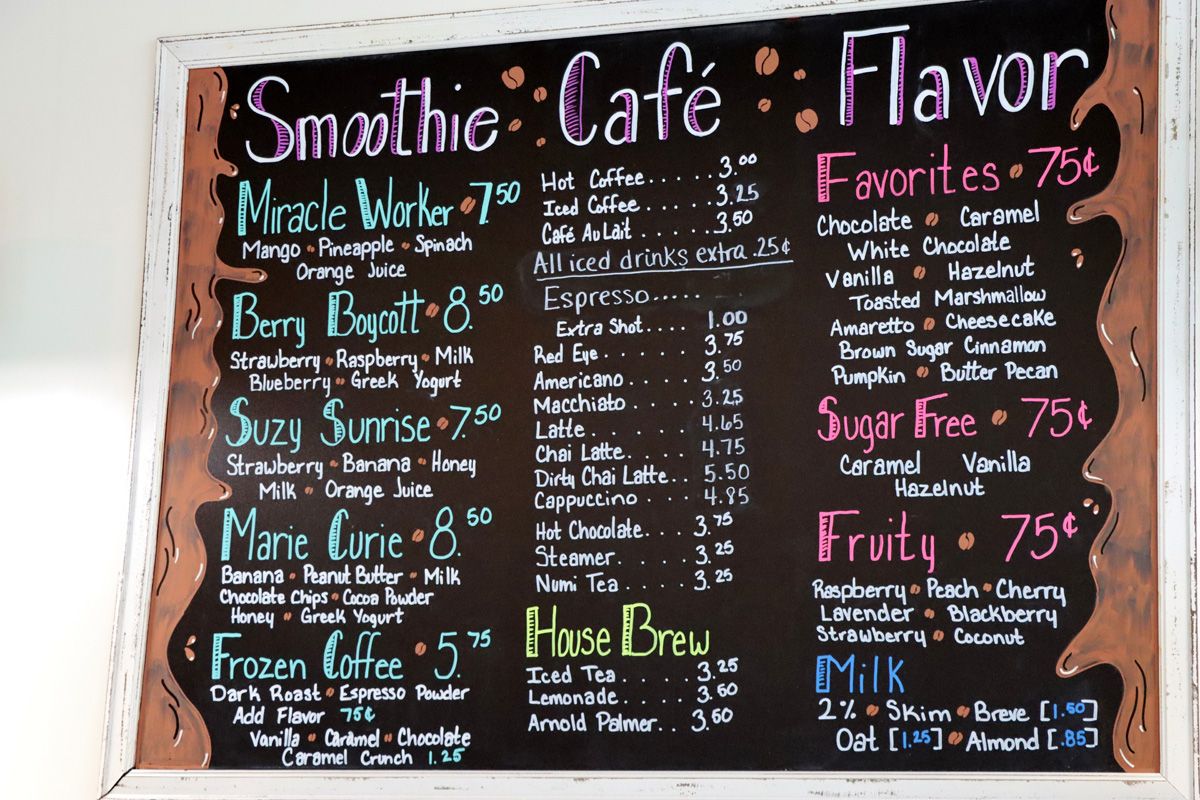 Smoothie
Miracle Worker 7.50
Mango Pineapple Spinach
Orange Juice
Berry Boycott 8.50
Strawberry Raspberry Milk
Blueberry Greek Yogurt
Suzy Sunrise 7.50
Strawberry Banana Honey
Milk Orange Juice
Marie Curie 8.50
Banana Peanut Butter Milk
Chocolate Chips Cocoa Powder
Honey Greek Yogurt
Frozen Coffee 5.75
Dark Roast Espresso Powder
Add Flavor 75¢
Vanilla Caramel Chocolate
Caramel Crunch 1.25
Café
Hot Coffee.....3.00
Iced Coffee......3.25
Café Au Lait......3.50
All iced drinks extra .25¢
Espresso.....
Extra Shot.... 1.00
Red Eye...... 3.75
Americano.... 3.50
Macchiato.... 3.25
Latte...... 4.65
Chai Latte.... 4.75
Dirty Chai Latte.. 5.50
Cappuccino... 4.85
Hot Chocolate... 3.75
Steamer.... 3.25
Numi Tea.... 3.25
House Brew
Iced Tea.... 3.25
Lemonade.... 3.50
Arnold Palmer.. 3.50
Flavor
Favorites 75¢
Chocolate Caramel
White Chocolate
Vanilla Hazelnut
Toasted Marshmallow
Amaretto Cheesecake
Brown Sugar Cinnamon
Pumpkin Butter Pecan
Sugar Free 75¢
Caramel Vanilla
Hazelnut
Fruity 75¢
Raspberry Peach Cherry
Lavender Blackberry
Strawberry Coconut
Milk
2% Skim Breve [1.50]
Oat [1.25] Almond [.85]